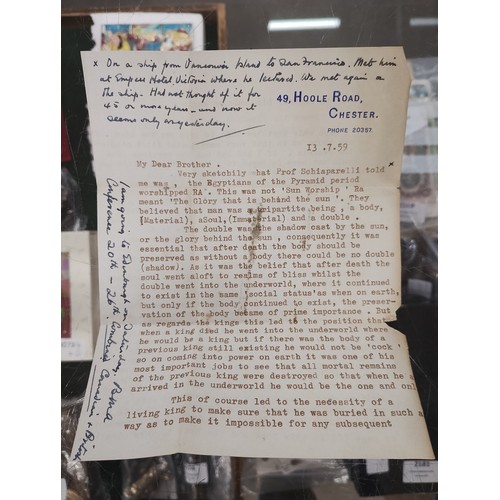 x On a ship from Vancouver Island to San Francisco. Met him
at Empress Hotel Victoria where he lectured. We met again on
the ship. Had not thought of it for
45 or more years - and now it
seems only as yesterday.
49, HOOLE ROAD,
CHESTER.
PHONE 20357.
13 .7.59
x
My Dear Brother .
Very sketchily what Prof Schiaparelli told
me was , the Egyptians of the Pyramid period
worshipped RA . This was not 'Sun Worship ' Ra
meant 'The Glory that is behind the sun '. They
believed that man was a tripartite being , a body,
(Material), aSoul,(Immaterial) and a double .
The double was the shadow cast by the sun,
or the glory behind the sun , consequently it was
essential that after death the body should be
preserved as without a body there could be no double
(shadow). As it was the belief that after death the
soul went aloft to realms of bliss whilst the
double went into the underworld, where it continued
to exist in the same 'social status'as when on earth,
but only if the body continued to exist, the preser-
vation of the body became of prime importance . But
as regards the kings this led to the position that
when a king died he went into the underworld where
he would be a king but if there was the body of a
previous king still existing he would not be 'cock '
so on coming into power on earth it was one of his
most important jobs to see that all mortal remains
of the previous king were destroyed so that when he a
arrived in the underworld he would be the one and onl
This of course led to the necessity of a
living king to make sure that he was buried in such a
way as to make it impossible for any subsequent
I am going to Edinburgh on
Conference 20th - 24th Combined Canadian &
2585